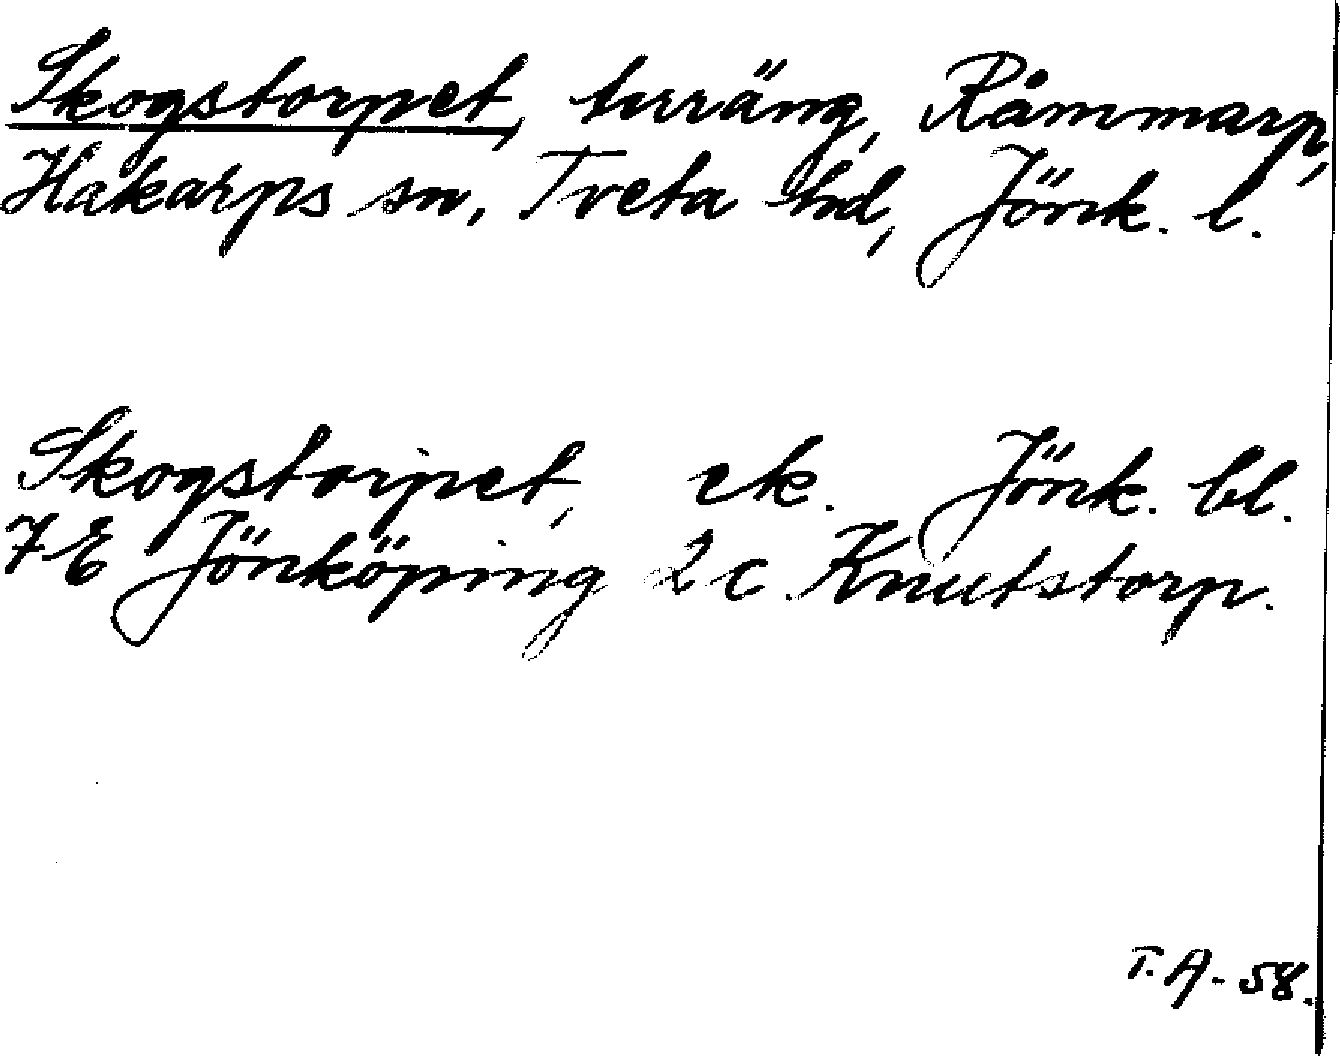 Skogstorpet, terräng, Råmmarp,
Hakarps sn, Tveta hd, Jönk. l.
Skogstorpet, ek. Jönk. bl.
7E Jönköping 2c Knutstorp.
T.A. 58.